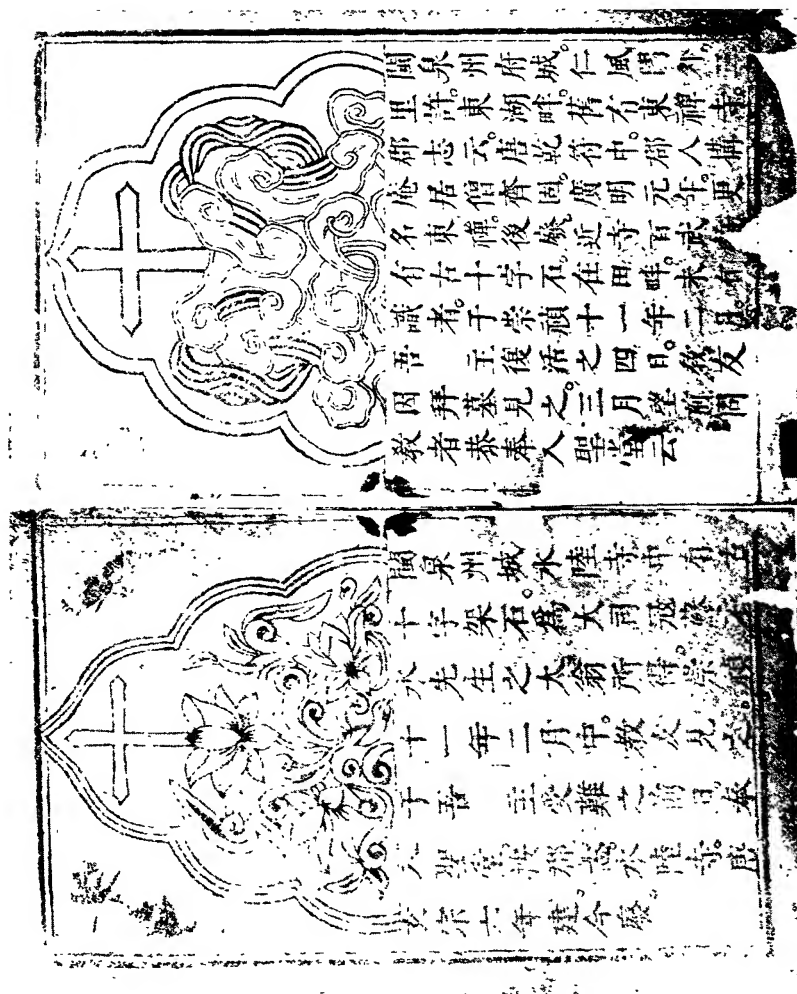 閩泉州府城。仁風門外。
里許。東湖畔。舊有東禪寺。
郡志云。唐乾符中。郡人搆
庵居僧齊固。廣明元年。更
名東禪。後廢。近寺百武
有古十字石。在田畔。未有
識者。于崇禎十一年二月。
吾 主復活之四日。教友
因拜墓見之。三月望前同
教者恭奉入 聖堂云
閩泉州城。水陸寺中。有古
十字架石。為大司寇蘇石
水先生之太翁所得。崇禎
十一年二月中。教友見之
于吾 主受難之前日。奉
入聖堂按郡志。水陸寺。唐
玄宗六年建。今廢。